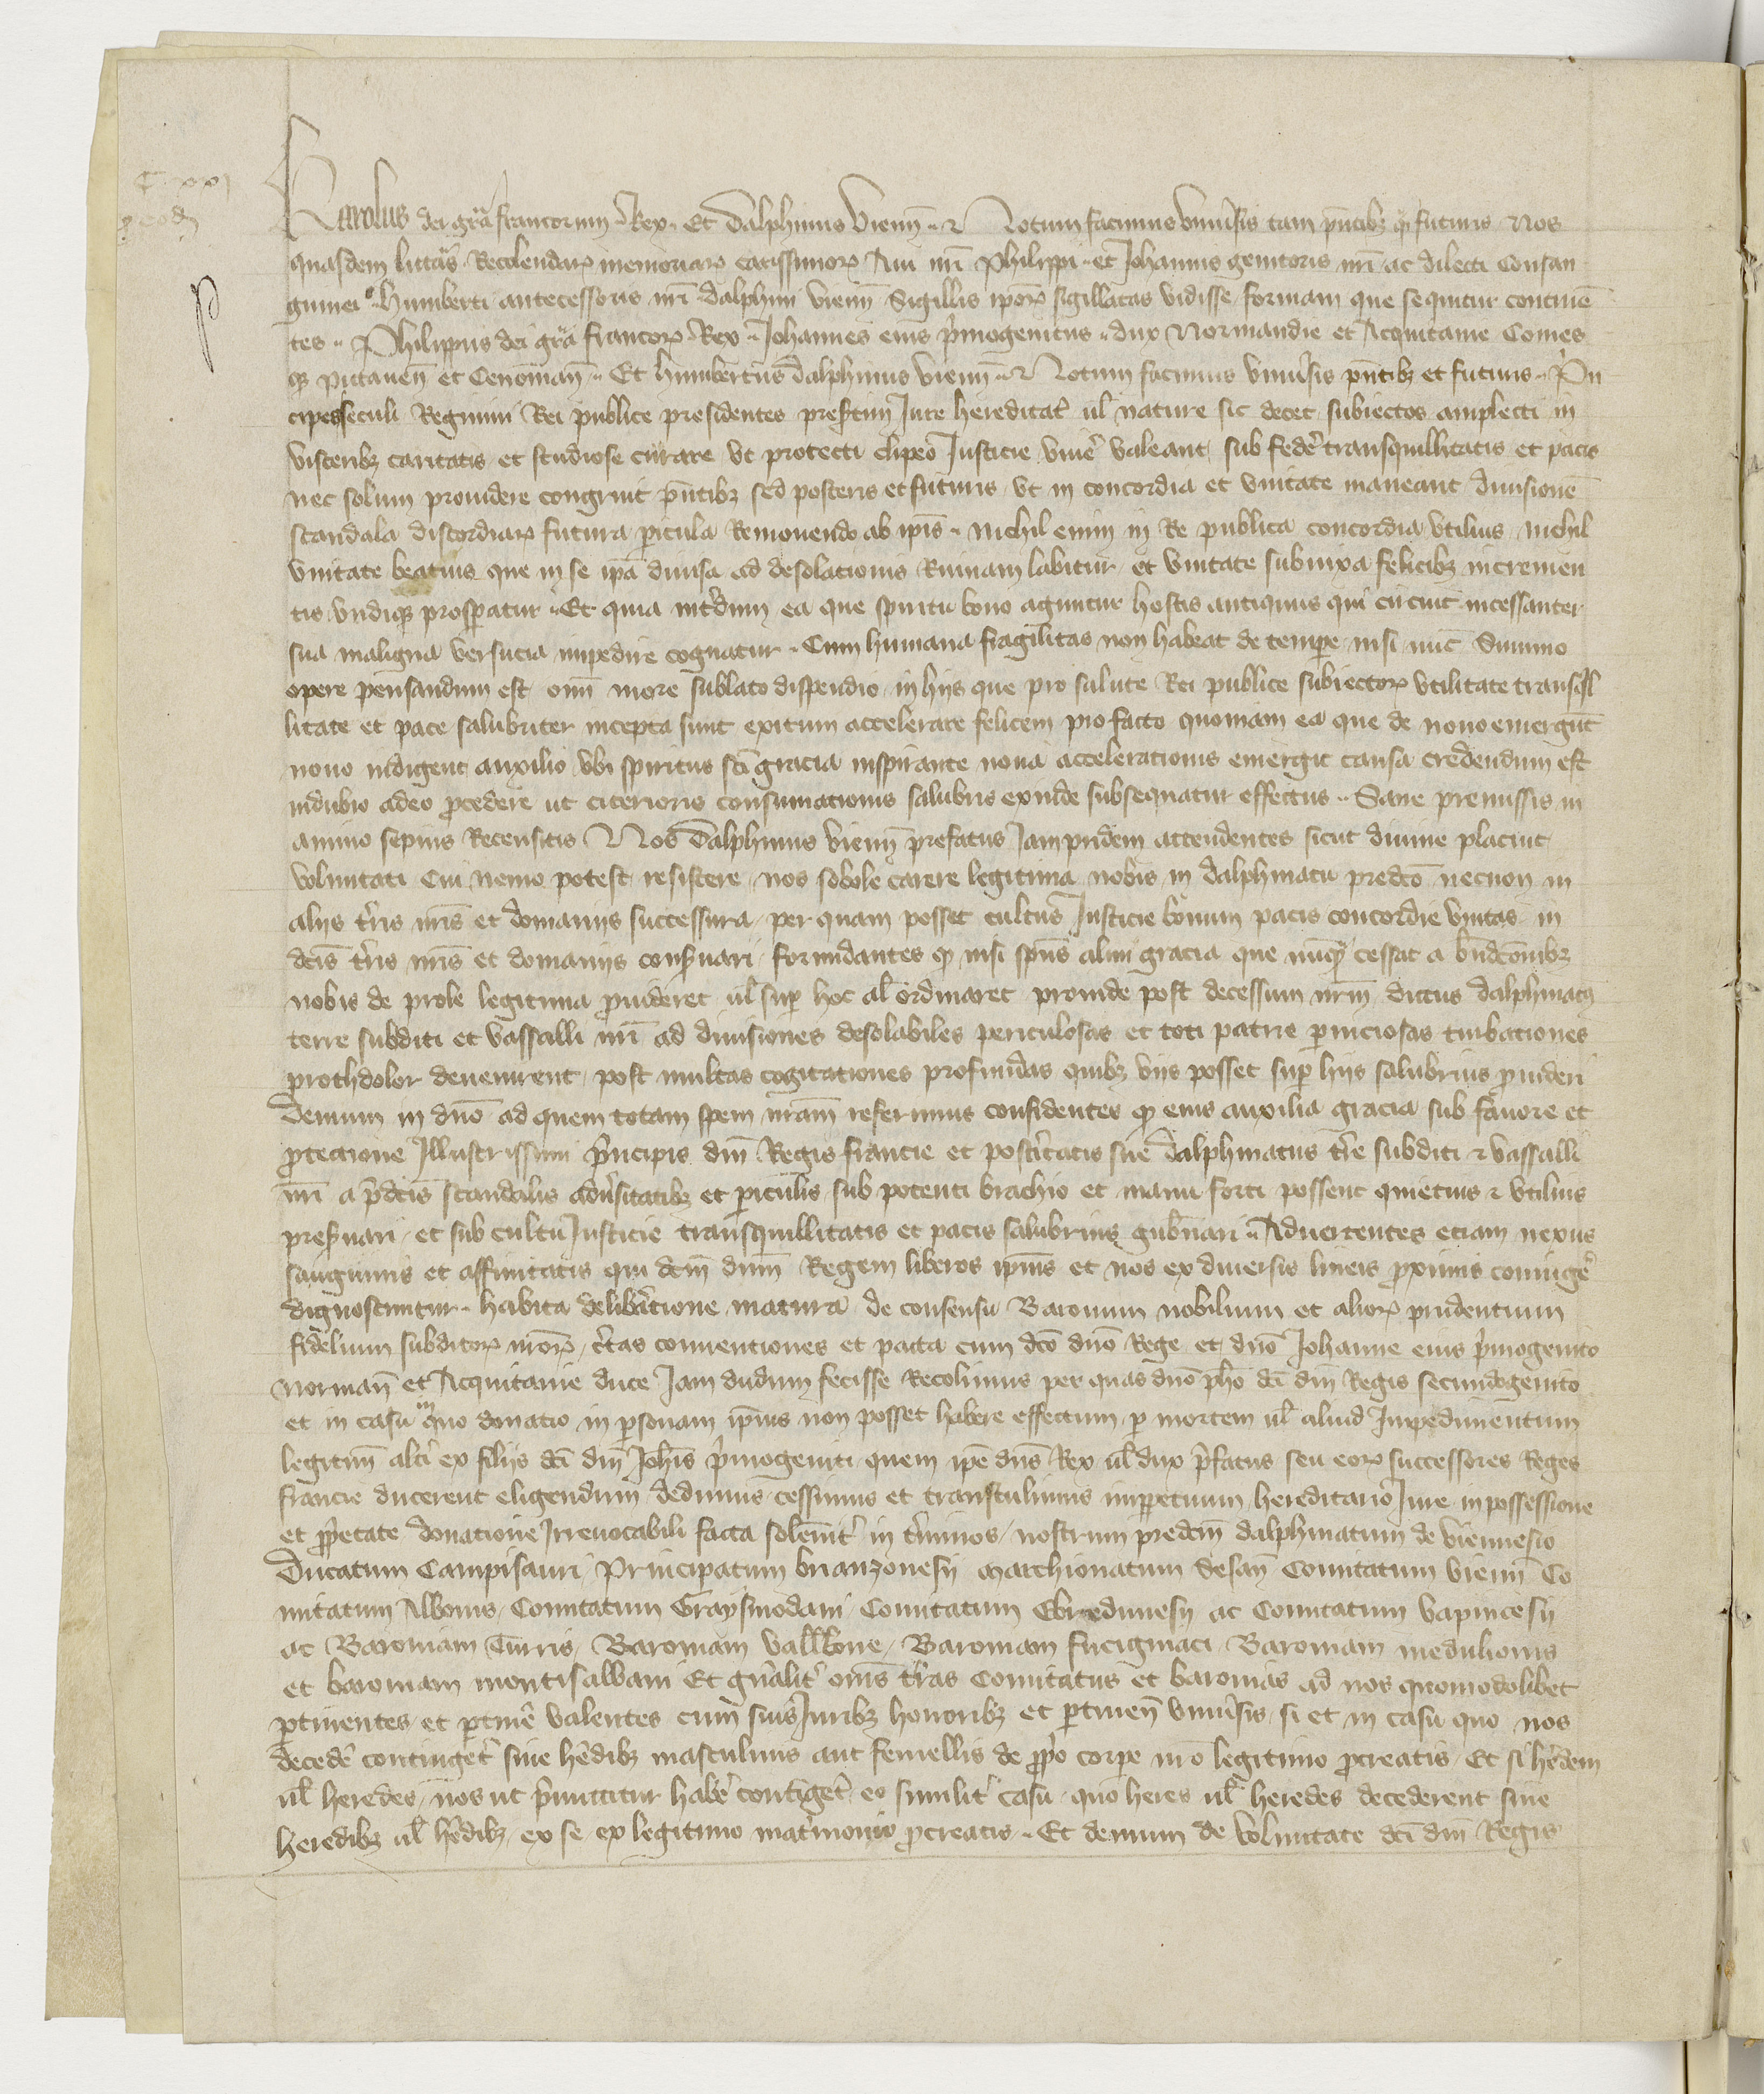 C xxj
Karolus dei gr̃a francorum Rex Et Dalphinus Vienñ ⁊ Notum facimus vniu̾sis tam p̃ntibꝫ q̃ futuris Nos
quasdem litt̾as Recolendaꝝ memoriaꝝ carissimoꝝ Aui nr̃i Philippi et Johannis genitoris nr̃i ac dilecti Consan
guinei Humberti antecessoris nr̃i dalphini vienñ Sigillis ip̃oꝝ sigillatas vidisse formam que sequitur continẽ
tes Philippus dei gr̃a francoꝝ Rex Johannes eius p̾mogenitus dux Normandie et Acquitanie Comes
qꝫ pictauen̄ et Cenoman̄ Et humbertus Dalphinus vienñ ⁊ Notum facimus vniu̾sis p̃ntibꝫ et futuris P̾n
cipes seculi Regimini Rei publice presidentes pres̾tim Jure hereditar̾ ul̃ nature sic decet subiectos amplecti in
visceribꝫ caritatis et studiose curare vt protecti clipeo Justicie viuer̾ valeant sub feder̾ transquillitatis et pacis
nec solum prouidere congruit p̃ntibꝫ sed posteris et futuris vt in concordia et vnitate maneant diuisionẽ
scandala discordiaꝝ futura ꝑicula Remouendo ab ip̃is Nichil enim in Re publica concordia vtilius nichil
vnitate beatius que in se ip̃a diuisa ad desolationis Ruinam labitur et vnitate subnixa felicibꝫ incremen
tis vndiqꝫ prosꝑatur Et quia int̾dum ea que spiritu bono aguntur hostis antiquus qui circuit incessanter
sua maligna versucia impedire cognatur Cum humana fragilitas non habeat de tempe nisi nuc̃ Summo
opere pensandum est om̃i more sublato dispendio in hijs que pro salute Rei publice subiectoꝝ vtilitate transq̾l
litate et pace salubriter incepta sunt exitum accelerare felicem pro facto quoniam ea que de nouo emergũt
nouo indigent auxilio vbi spiritus sc̃i gracia inspirante noua accelerationis emergit causa credendum est
indubio adeo ꝓcedere ut citerioris consumationis salubris exinde subsequatur effectus Sane premissis in
animo sepius Recensitis Nos Dalphinus vienñ prefatus Jampridem attendentes sicut diuine placuit
voluntati Cui nemo potest resistere nos sobole carere legitima nobis in dalphinatu predc̃o necnon in
alijs t̾ris nr̃is et domanijs successura per quam posset cultus Justicie bonum pacis concordie vnitas in
dc̃is t̾ris nr̃is et domanijs cons̾uari formidantes ꝙ nisi sp̃us almi gracia que nũqꝫ cessat a bn̄dcõnibꝫ
nobis de prole legitima ꝓuideret ul̃ suꝑ hoc al̃ ordinaret proinde post decessum nr̃m dictus dalphinatꝰ
terre subditi et vassalli nr̃i ad diuisiones desolabiles periculosas et toti patrie ꝑniciosas turbationes
prothdolor deuenirent post multas cogitationes profundas quibꝫ vijs posset suꝑ hijs salubrius ꝓuideri
demum in dño ad quem totam spem nr̃am referimus confidentes ꝙ eius auxilia gracia sub fauore et
ꝓtectione Illustrissimi p̾ncipis dñi Regis francie et post̾itatis sue dalphinatus t̾re subditi ⁊ vassalli
nr̃i a p̾dc̃is scandalis adu̾sitatibꝫ et ꝑiculis sub potenti brachio et manu forti possent quietius ⁊ vtilius
pres̾uari et sub cultu Justicie transquillitatis et pacis salubrius gub̾nari Aduertentes eciam nexus
sanguinis et affinitatis qui dc̃m dñm Regem liberos ip̃ius et nos ex diuersis lineis ꝓximis coniunger̾
dignoscuntur habita delib̾atione matura de consensu Baronum nobilium et alioꝝ prudentium
fidelium subditoꝝ nr̃oꝝ c̾tas conuentiones et pacta cum dc̃o dño Rege et dño Johanne eius p̾mogenito
Norman̄ et Acquitanie duce Jam dudum fecisse Recolimus per quas dño ph̃o dc̃i dñi Regis secundogenito
et in casu in quo donatio in ꝑsonam ip̃ius non posset habere effectum ꝑ mortem ul̃ aliud Impedimentum
legitim̃ alt̾i ex filijs dc̃i dñi Joh̃is p̾mogeniti quem ip̃e dñs Rex ul̃ dux p̾fatus seu eoꝝ successores Reges
francie ducerent eligendum dedimus cessimus et transtulimus imꝑpetuum hereditario Jure in possessione
et ꝓp̾etate donatione Irreuocabili facta solen̄it̾ in t̾minos nostrum predc̃m dalphinatum de viennesio
Ducatum Campisauri Principatum brianzonesij Marchionatum Sesan̄ Comitatum vienñ Co
mitatum Albonis Comitatum Graysinodani Comitatum Ebredunesij ac Comitatum vapincesij
ac Baroniam Turris Baroniam vall̃bone Baroniam fucigniaci Baroniam medulionis
et baroniam montisalbani Et gn̾alit̾ om̃s t̾ras Comitatus et baronias ad nos quomodolibet
ꝑtinentes et ꝑtiner̾ valentes cum suis Juribꝫ honoribꝫ et ꝑtinen̄ vniu̾sis si et in casu quo nos
deceder̾ continget̾ sine her̾dibꝫ masculinis aut femellis de ꝓp̾o corꝑe nr̃o legitimo ꝓcreatis Et si her̾dem
ul̃ heredes nos ut p̾mittitur haber̾ contiget̾ eo similit̾ casu quo heres ul̃ heredes decederent sine
heredibꝫ ul̃ her̾dibꝫ ex se ex legitimo mat̾monio ꝓcreatis Et demum de voluntate dc̃i dñi Regis